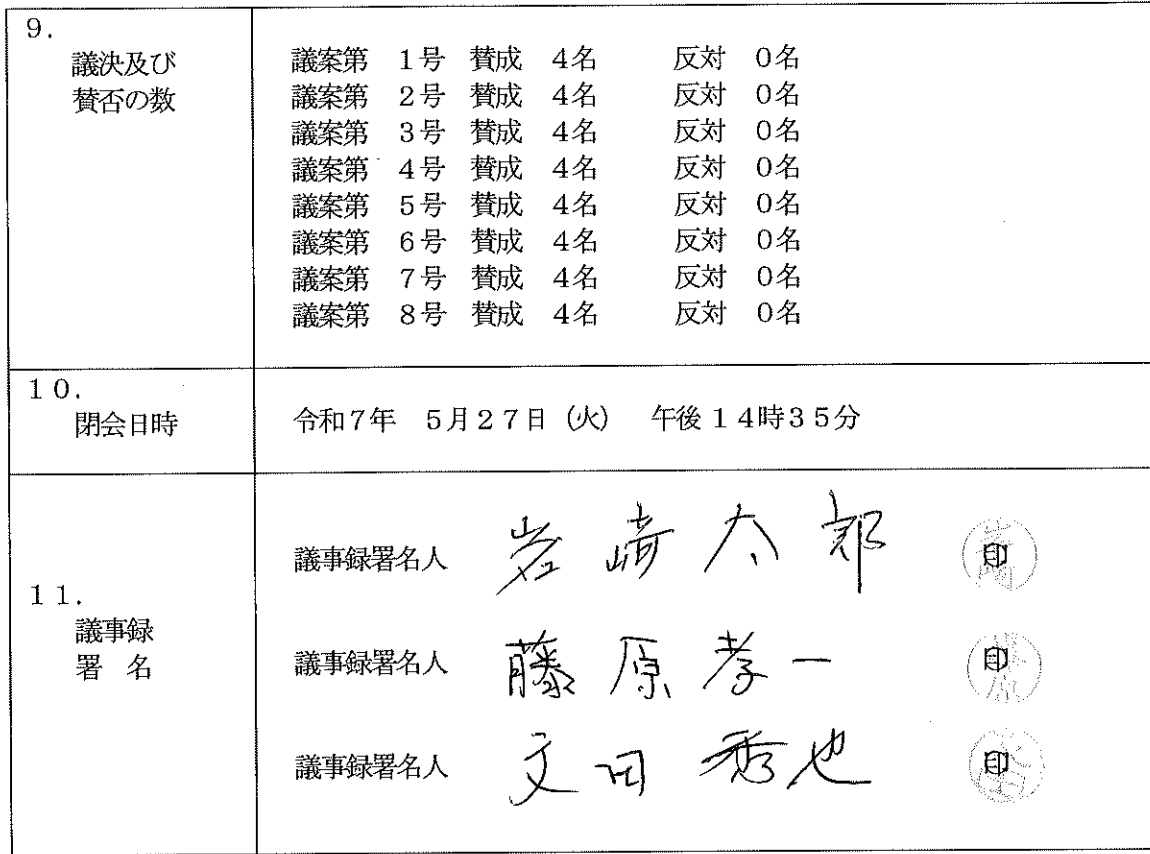 9.
議決及び
賛否の数
議案第 1号 賛成 4名 反対 0名
議案第 2号 賛成 4名 反対 0名
議案第 3号 賛成 4名 反対 0名
議案第 4号 賛成 4名 反対 0名
議案第 5号 賛成 4名 反対 0名
議案第 6号 賛成 4名 反対 0名
議案第 7号 賛成 4名 反対 0名
議案第 8号 賛成 4名 反対 0名
10.
閉会日時
令和7年 5月27日(火) 午後14時35分
11.
議事録
署 名
議事録署名人 岩崎太郎 印
議事録署名人 藤原孝一 印
議事録署名人 文田秀也 印